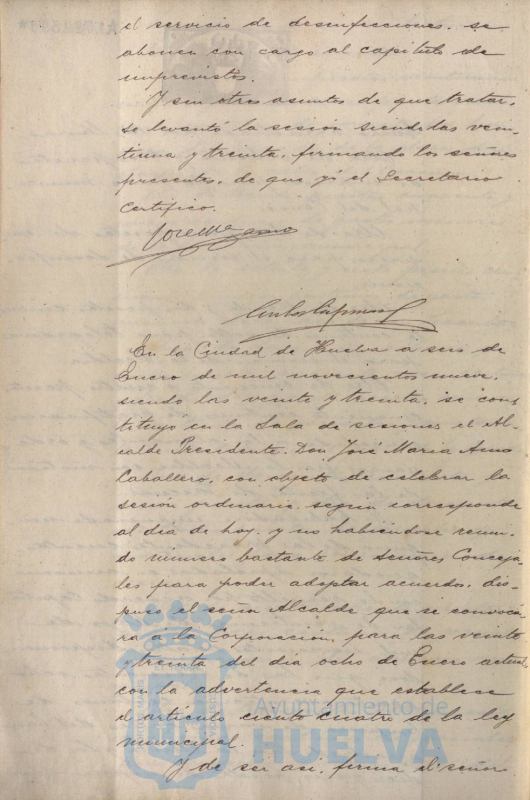 el servicio de desinfecciones, se
abonen con cargo al capítulo de
imprevistos.
Y sin otros asuntos de que tratar,
se levantó la sesión siendo las vein-
tiuna y treinta, firmando los señores
presentes, de que yo el Secretario
certifico.
En la Ciudad de Huelva a seis de
Enero de mil novecientos nueve,
siendo las veinte y treinta, se cons
tituyó en la Sala de sesiones el Al-
calde Presidente, Don José Maria Amo
Caballero, con objeto de celebrar la
sesión ordinaria, segun corresponde
al dia de hoy, y no habiéndose reuni-
do número bastante de señores Conceja-
les para poder adoptar acuerdo, dis-
puso el señor Alcalde que se convoca-
ra á la Corporación, para las veinte
y treinta del dia ocho de Enero actual,
con la advertencia que establece
el artículo ciento cuatro de la ley
municipal.
Y de ser asi, firma el señor
Ayuntamiento de
HUELVA